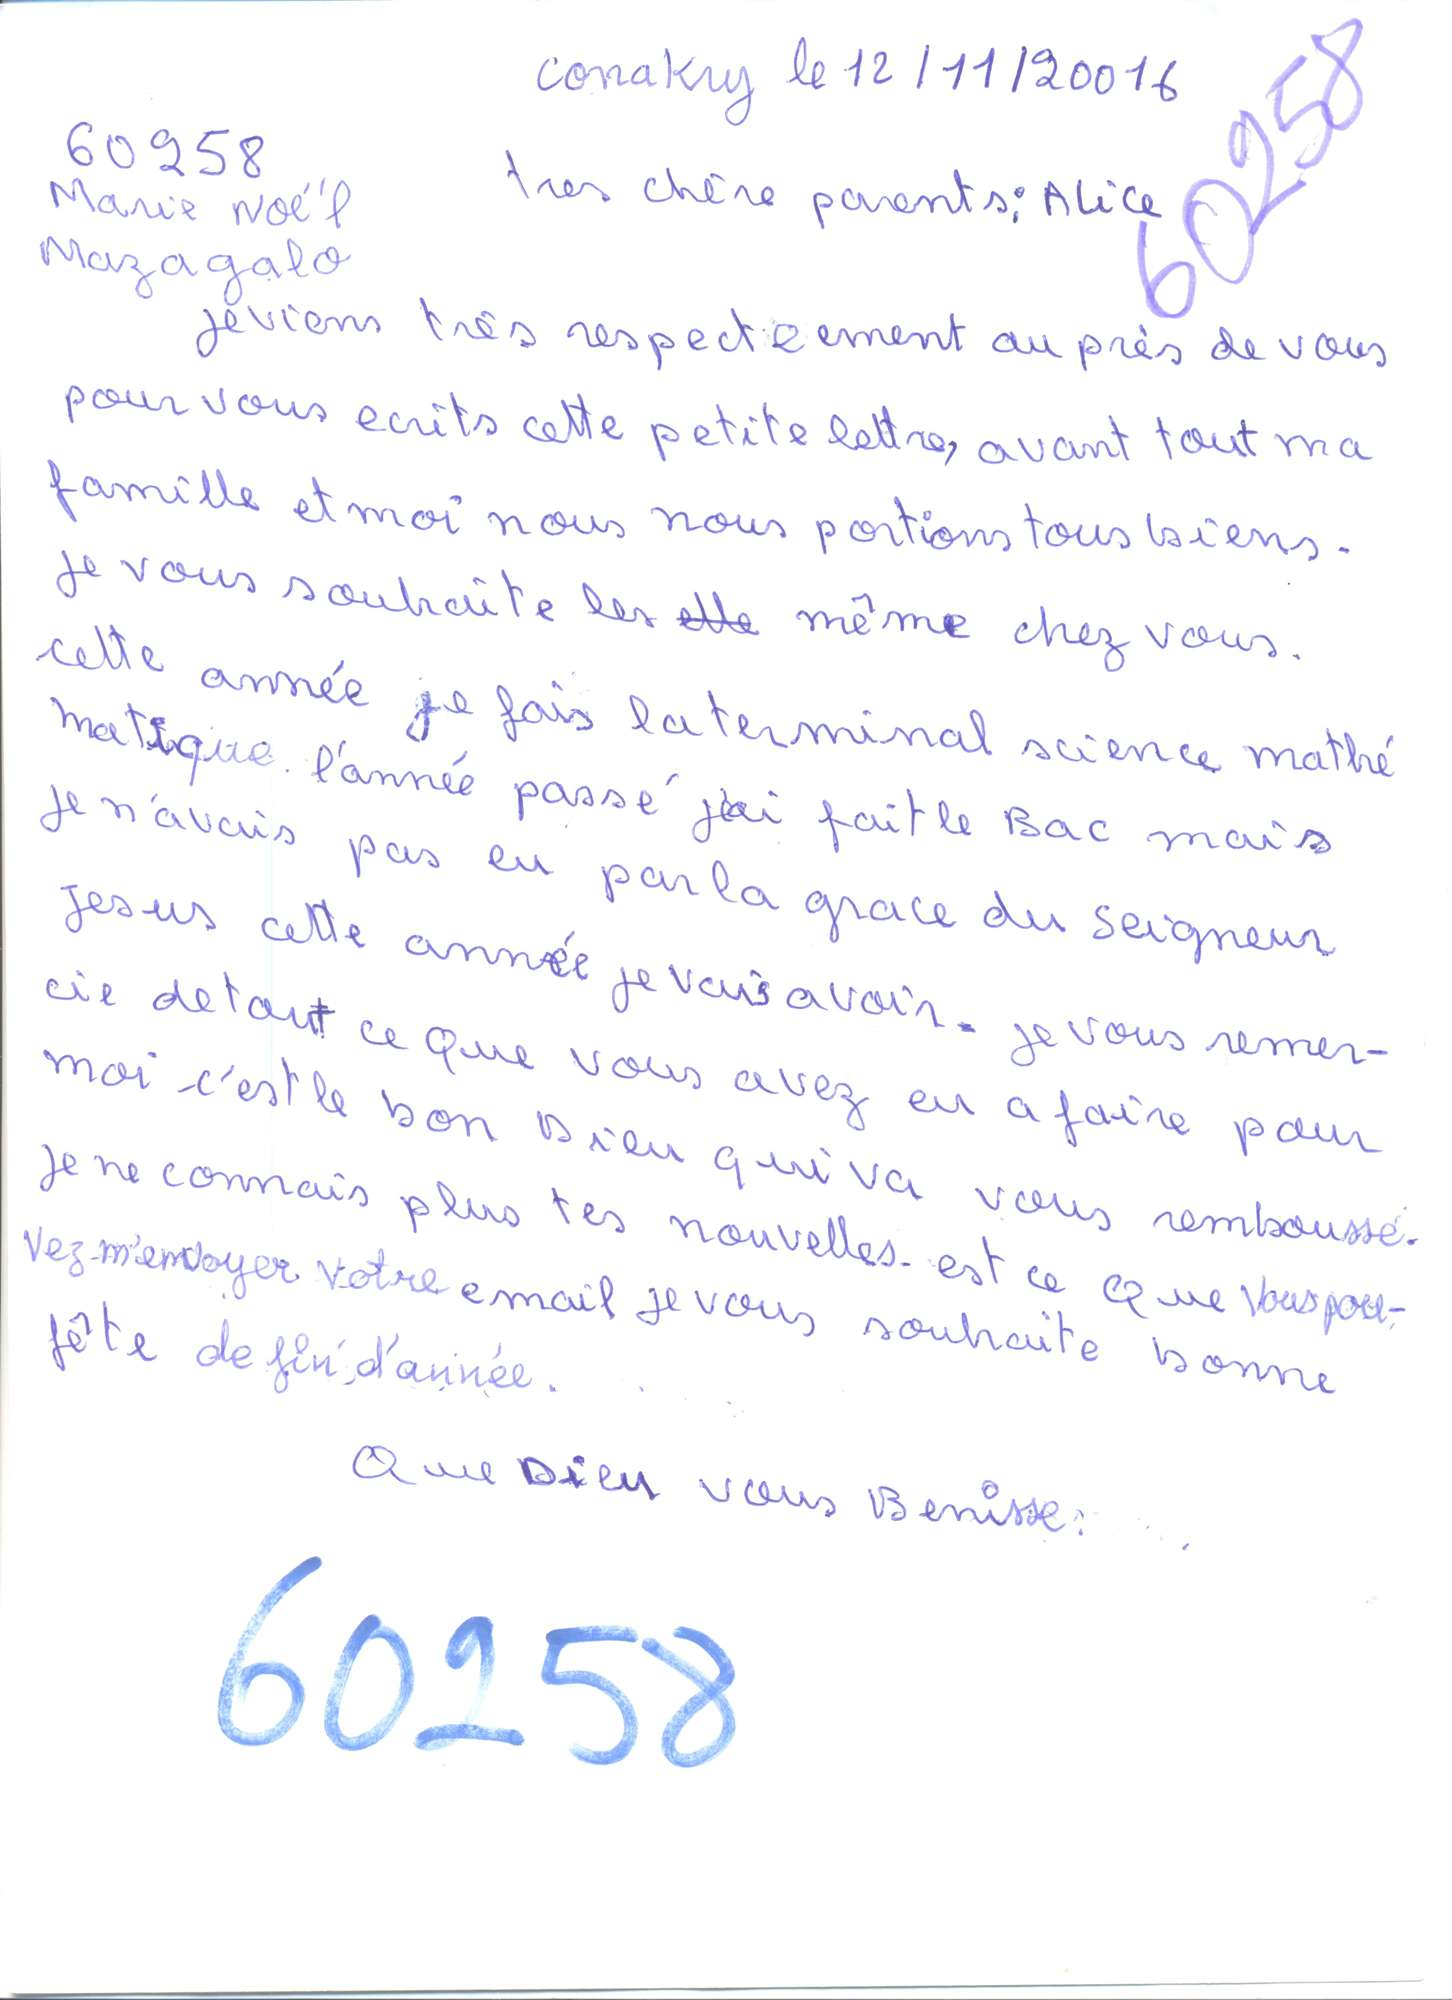 conakry le 12/11/20016
60258
60258
Marie Noë'l
Mazagalo
tres chère parents; Alice
je viens très respecteement au près de vous
pour vous ecrits cette petite lettre, avant tout ma
famille et moi nous nous portions tous biens.
je vous souhaite les elle même chez vous.
cette année je fais la terminal science mathé
matique. l'année passé j'ai fait le Bac mais
je n'avais pas eu par la grace du Seigneur
jesus cette année je vais avoir. je vous remer-
cie de tout ce que vous avez eu a faire pour
moi c'est le bon Dieu qui va vous rembousse.
je ne connais plus tes nouvelles. est ce que vous pou-
vez-m'envoyer votre email je vous souhaite bonne
fête de fin d'année.
Que Dieu vous Benisse.
60258